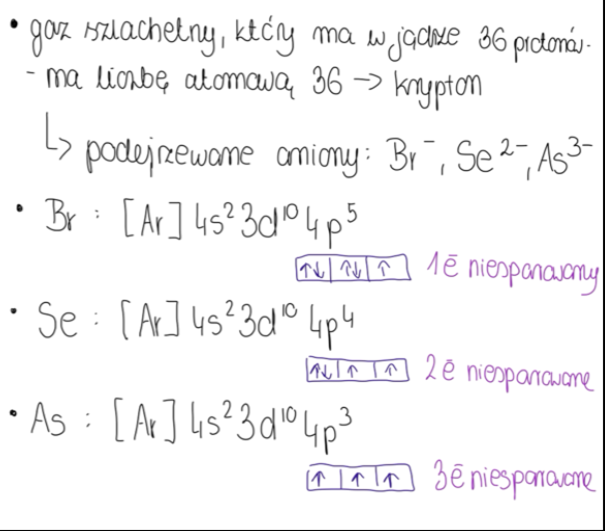 • gaz szlachetny, który ma w jądrze 36 protonów.
- ma liczbę atomową 36 → krypton
↳ podejrzewane aniony: Br⁻, Se²⁻, As³⁻
• Br : [Ar] 4s² 3d¹⁰ 4p⁵
↑↓ | ↑↓ | ↑ 1ē niesparowany
• Se : [Ar] 4s² 3d¹⁰ 4p⁴
↑↓ | ↑ | ↑ 2ē niesparowane
• As : [Ar] 4s² 3d¹⁰ 4p³
↑ | ↑ | ↑ 3ē niesparowane